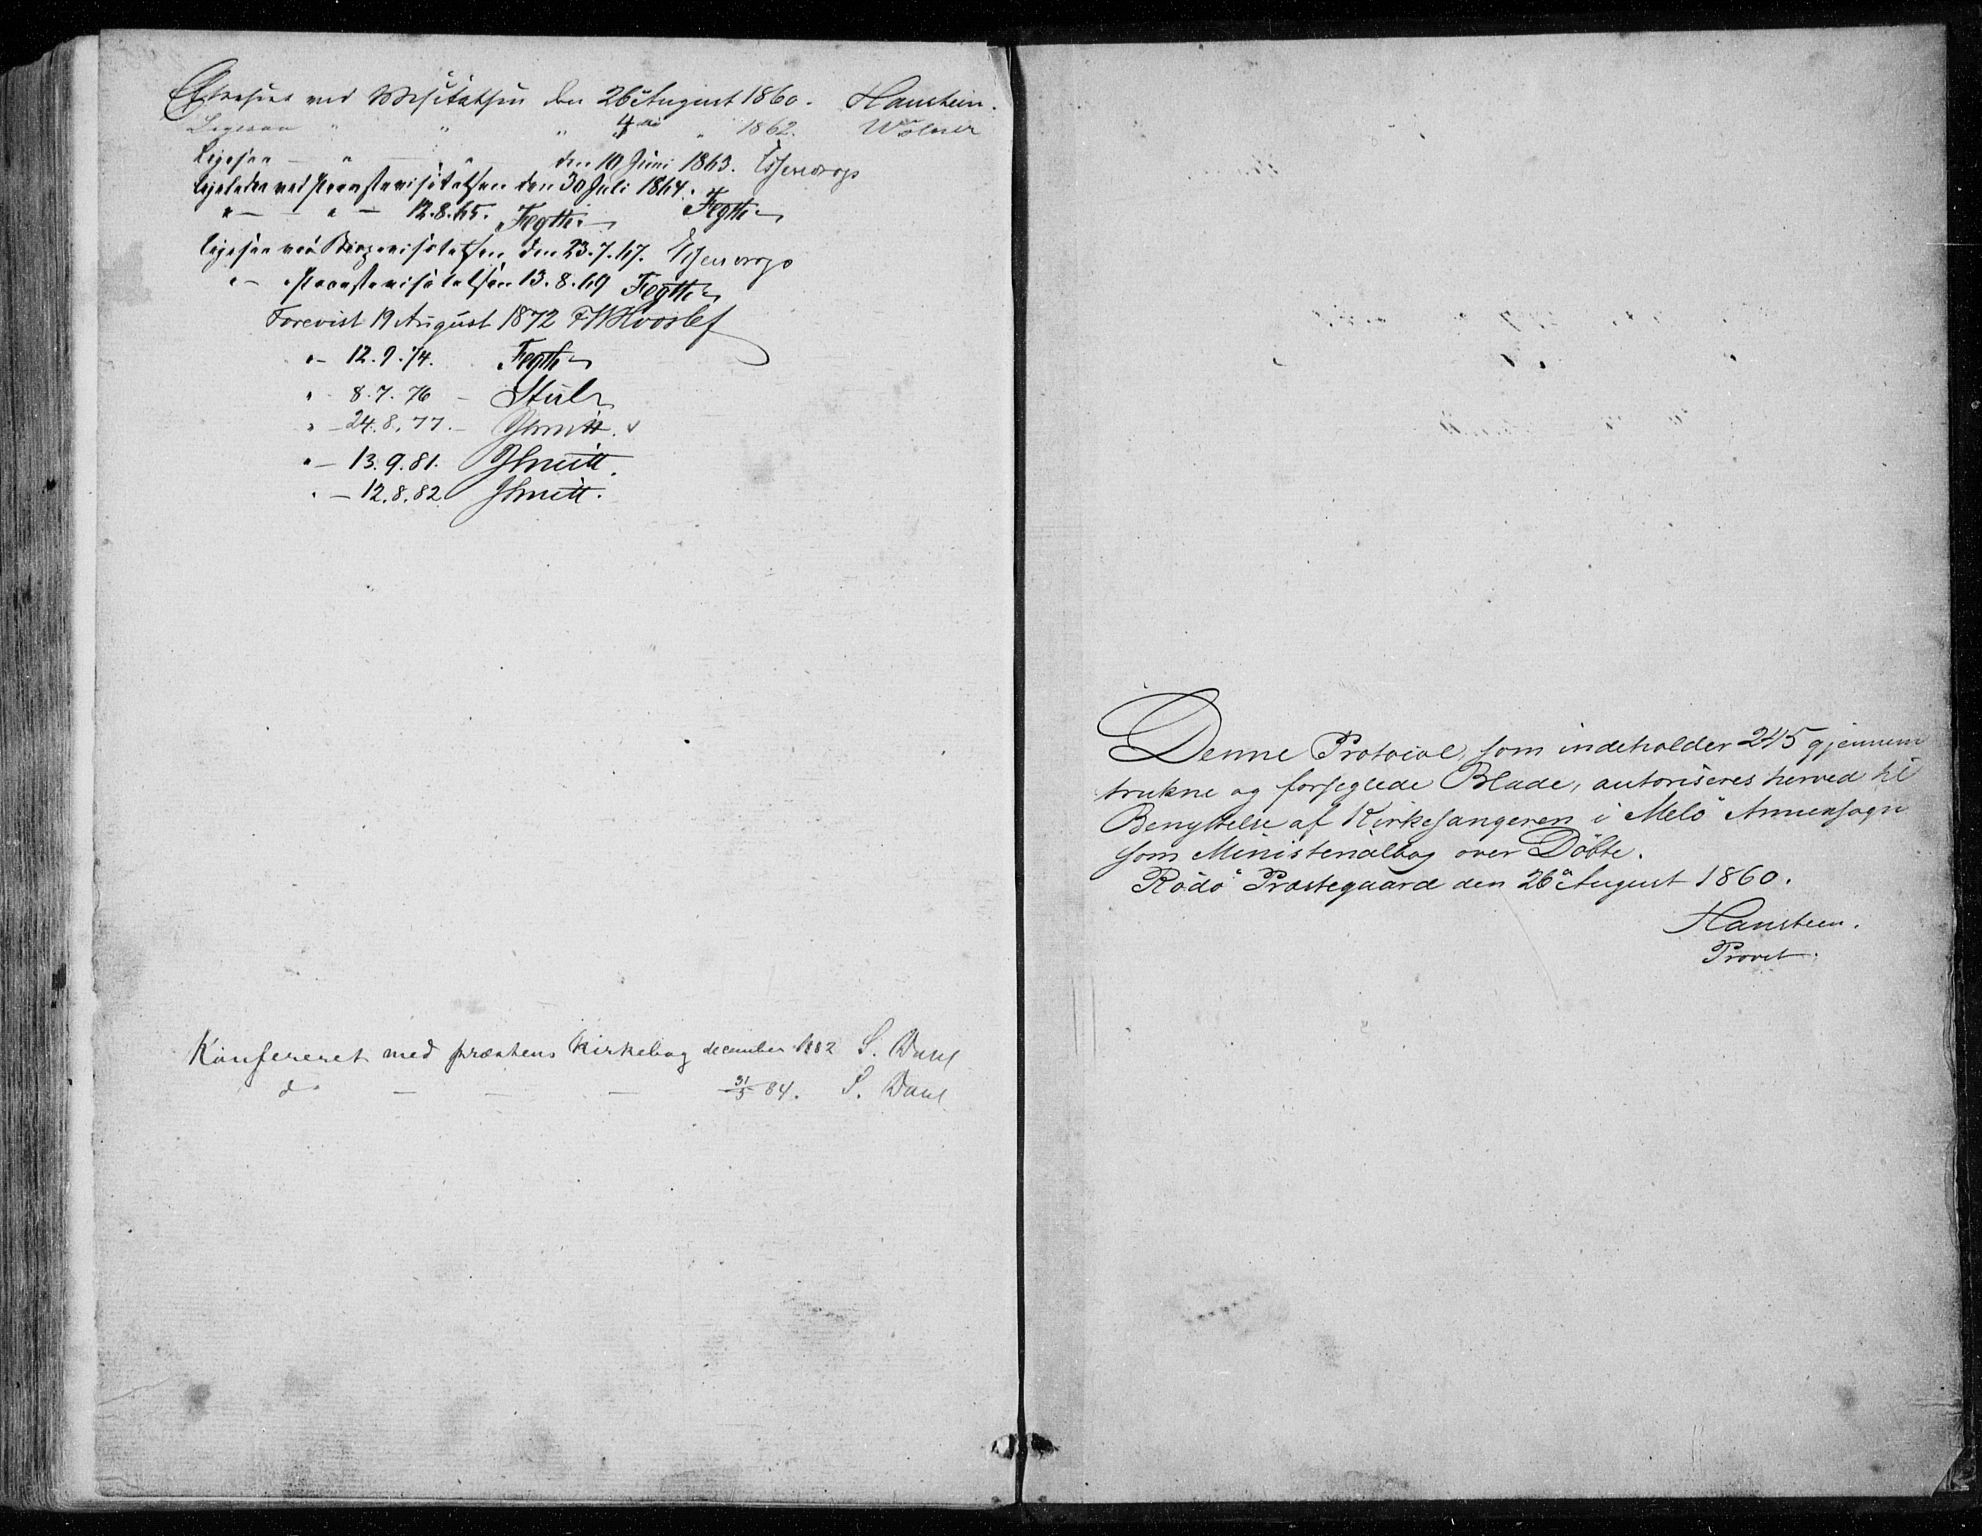 Efterseet ved Visitatsen den 26de August 1860. Hansteen.
Ligesaa " " " 4de " 1862. Wolner
Ligesaa — " — " — den 10 Juni 1863.
Ligeledes ved Provstevisitatsen den 30 Juli 1864.
" — " — 12.8.65. Fegth Fegth
Ligesaa ved Bispevisitatsen den 23.7.67.
" — Provstevisitatsen 13.8.69 Fegth
Forevist 19 August 1872 FWHvoslef
" — 12.9.74. Fegth
" - 8.7.76 —
" — 24.8.77. — Schmitt.
" — 13.9.81. Schmitt.
" — 12.8.82 Schmitt.
Konfereret med præstens Kirkebog december 1882 S. Dahl
do — — — 31/5 84. S. Dahl
Denne Protocol, som indeholder 245 gjennem
trukne og forseglede Blade, autoriseres herved til
Benyttelse af Kirkesangeren i Melö Annexsogn
som Ministerialbog over Döbte.
Rödö Præstegaard den 26de August 1860.
Hansteen.
Provst.